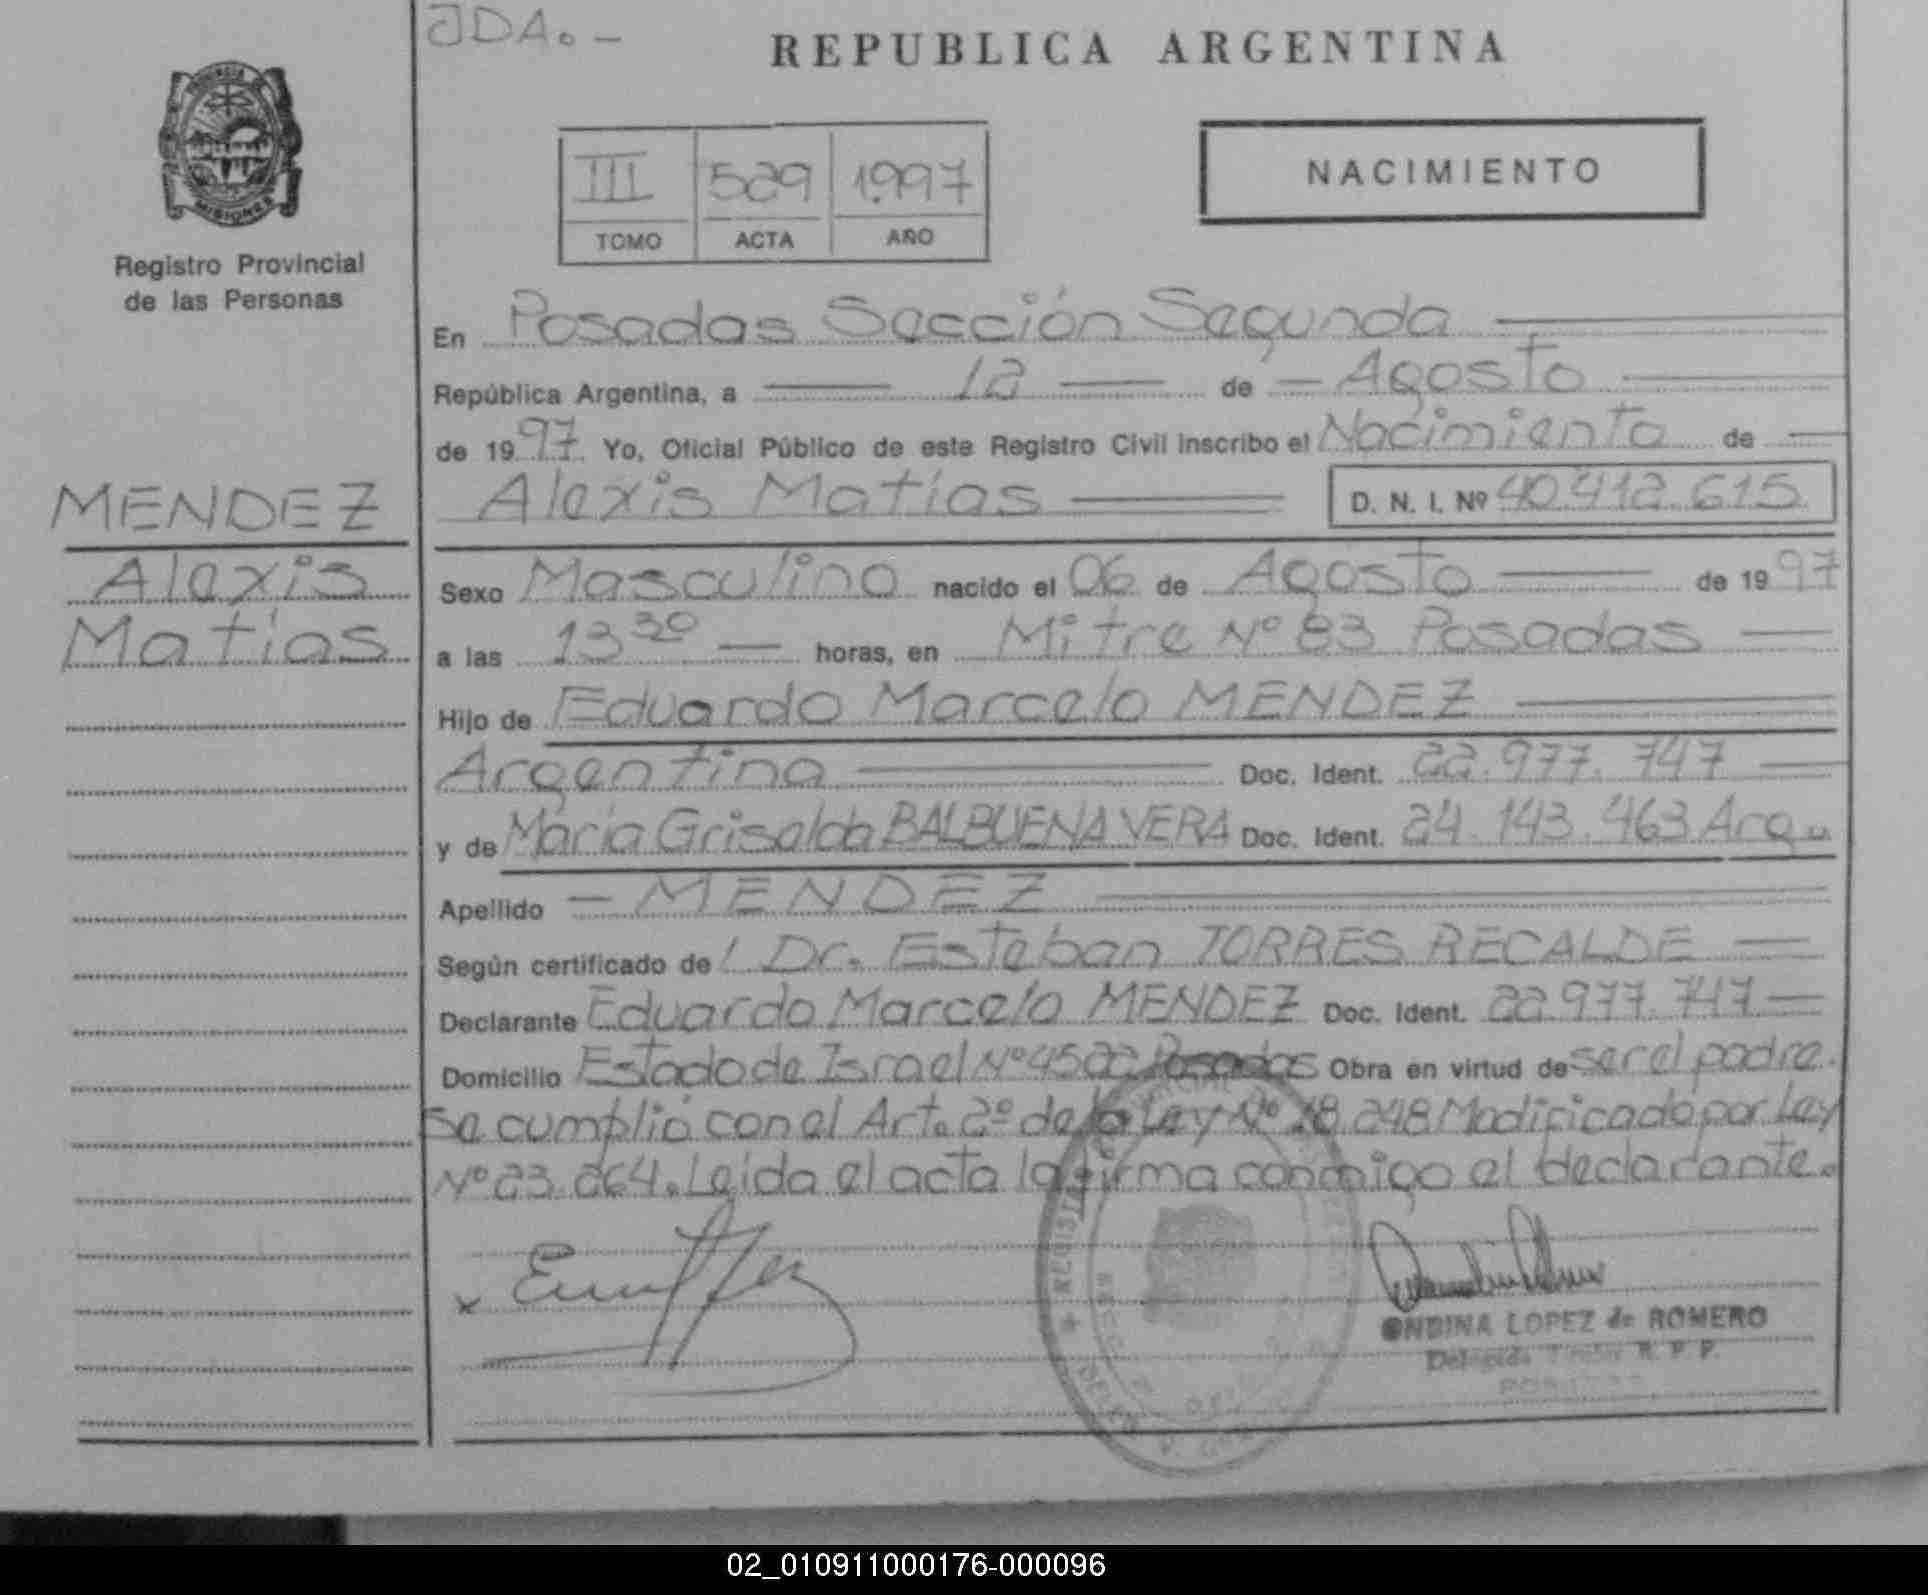 JDA. -
REPUBLICA ARGENTINA
MISIONES
Registro Provincial
de las Personas
III 529 1.997
TOMO ACTA AÑO
NACIMIENTO
En Posadas Sección Segunda
República Argentina, a 12 de Agosto
de 1997 Yo, Oficial Público de este Registro Civil inscribo el Nacimiento de
Alexis Matías D. N. I. Nº 40.412.615
MENDEZ
Alexis
Matías
Sexo Masculino nacido el 06 de Agosto de 1997
a las 13 30 horas, en Mitre Nº 83 Posadas
Hijo de Eduardo Marcelo MENDEZ
Argentina Doc. Ident. 22.977.747
y de María Griselda BALBUENA VERA Doc. Ident. 24.143.463 Arg.
Apellido - MENDEZ
Según certificado de Dr. Esteban TORRES RECALDE
Declarante Eduardo Marcelo MENDEZ Doc. Ident. 22.977.747
Domicilio Estado de Israel Nº 4522 Posadas Obra en virtud de ser el padre.
Se cumplió con el Art. 2º de la Ley Nº 18.248 Modificado por Ley
Nº 23.264. Leída el acta la firma conmigo el declarante.
x
ONDINA LOPEZ de ROMERO
R. P. P.
02_010911000176-000096